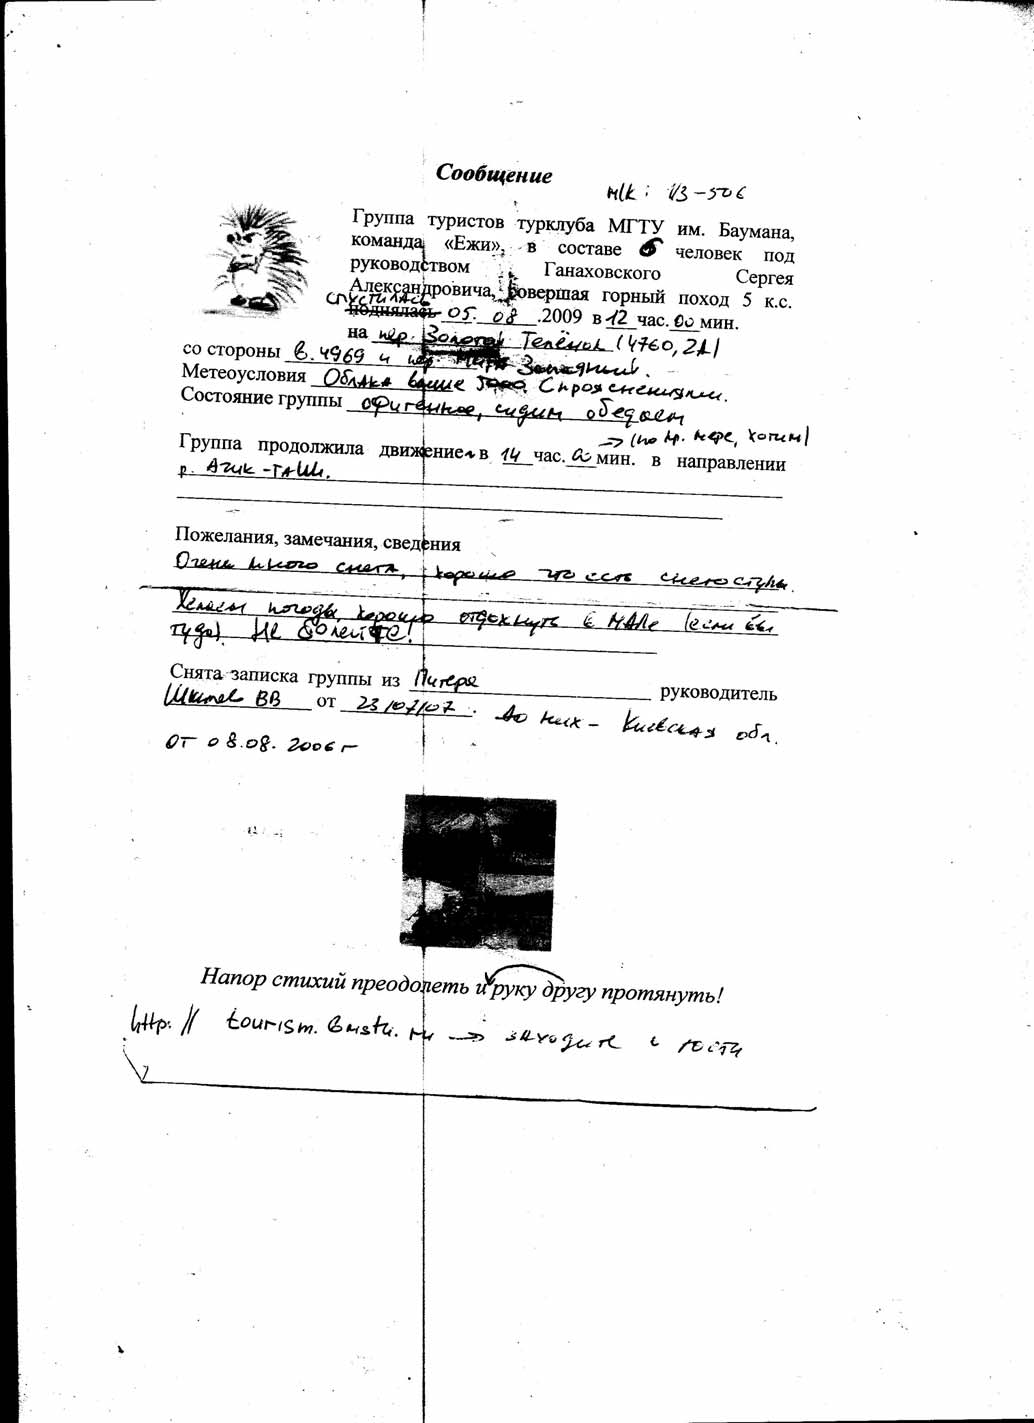 Сообщение
м/к: 1/3-506
Группа туристов турклуба МГТУ им. Баумана,
команда «Ежи», в составе 6 человек под
руководством Ганаховского Сергея
Александровича, совершая горный поход 5 к.с.
спустилась
поднялась 05. 08 .2009 в 12 час. 00 мин.
на пер. Золотой Телёнок (4760, 2А)
со стороны в. 4969 и пер. Западный.
Метеоусловия Облака выше С прояснениями.
Состояние группы офигенное, сидим обедаем
→ (по кр. мере, хотим)
Группа продолжила движение в 14 час. 00 мин. в направлении
р. Ачик-Таш.
Пожелания, замечания, сведения
Очень много снега, хорошо что есть снегоступы.
Желаем погоды, хорошо отдохнуть в МАЛе (если вы
туда). Не болейте!
Снята записка группы из Питера руководитель
ВВ от 23/07/07. До них - Киевская обл.
от 08.08. 2006 г
Напор стихий преодолеть и руку другу протянуть!
http:// tourism.bmstu.ru → заходите в гости